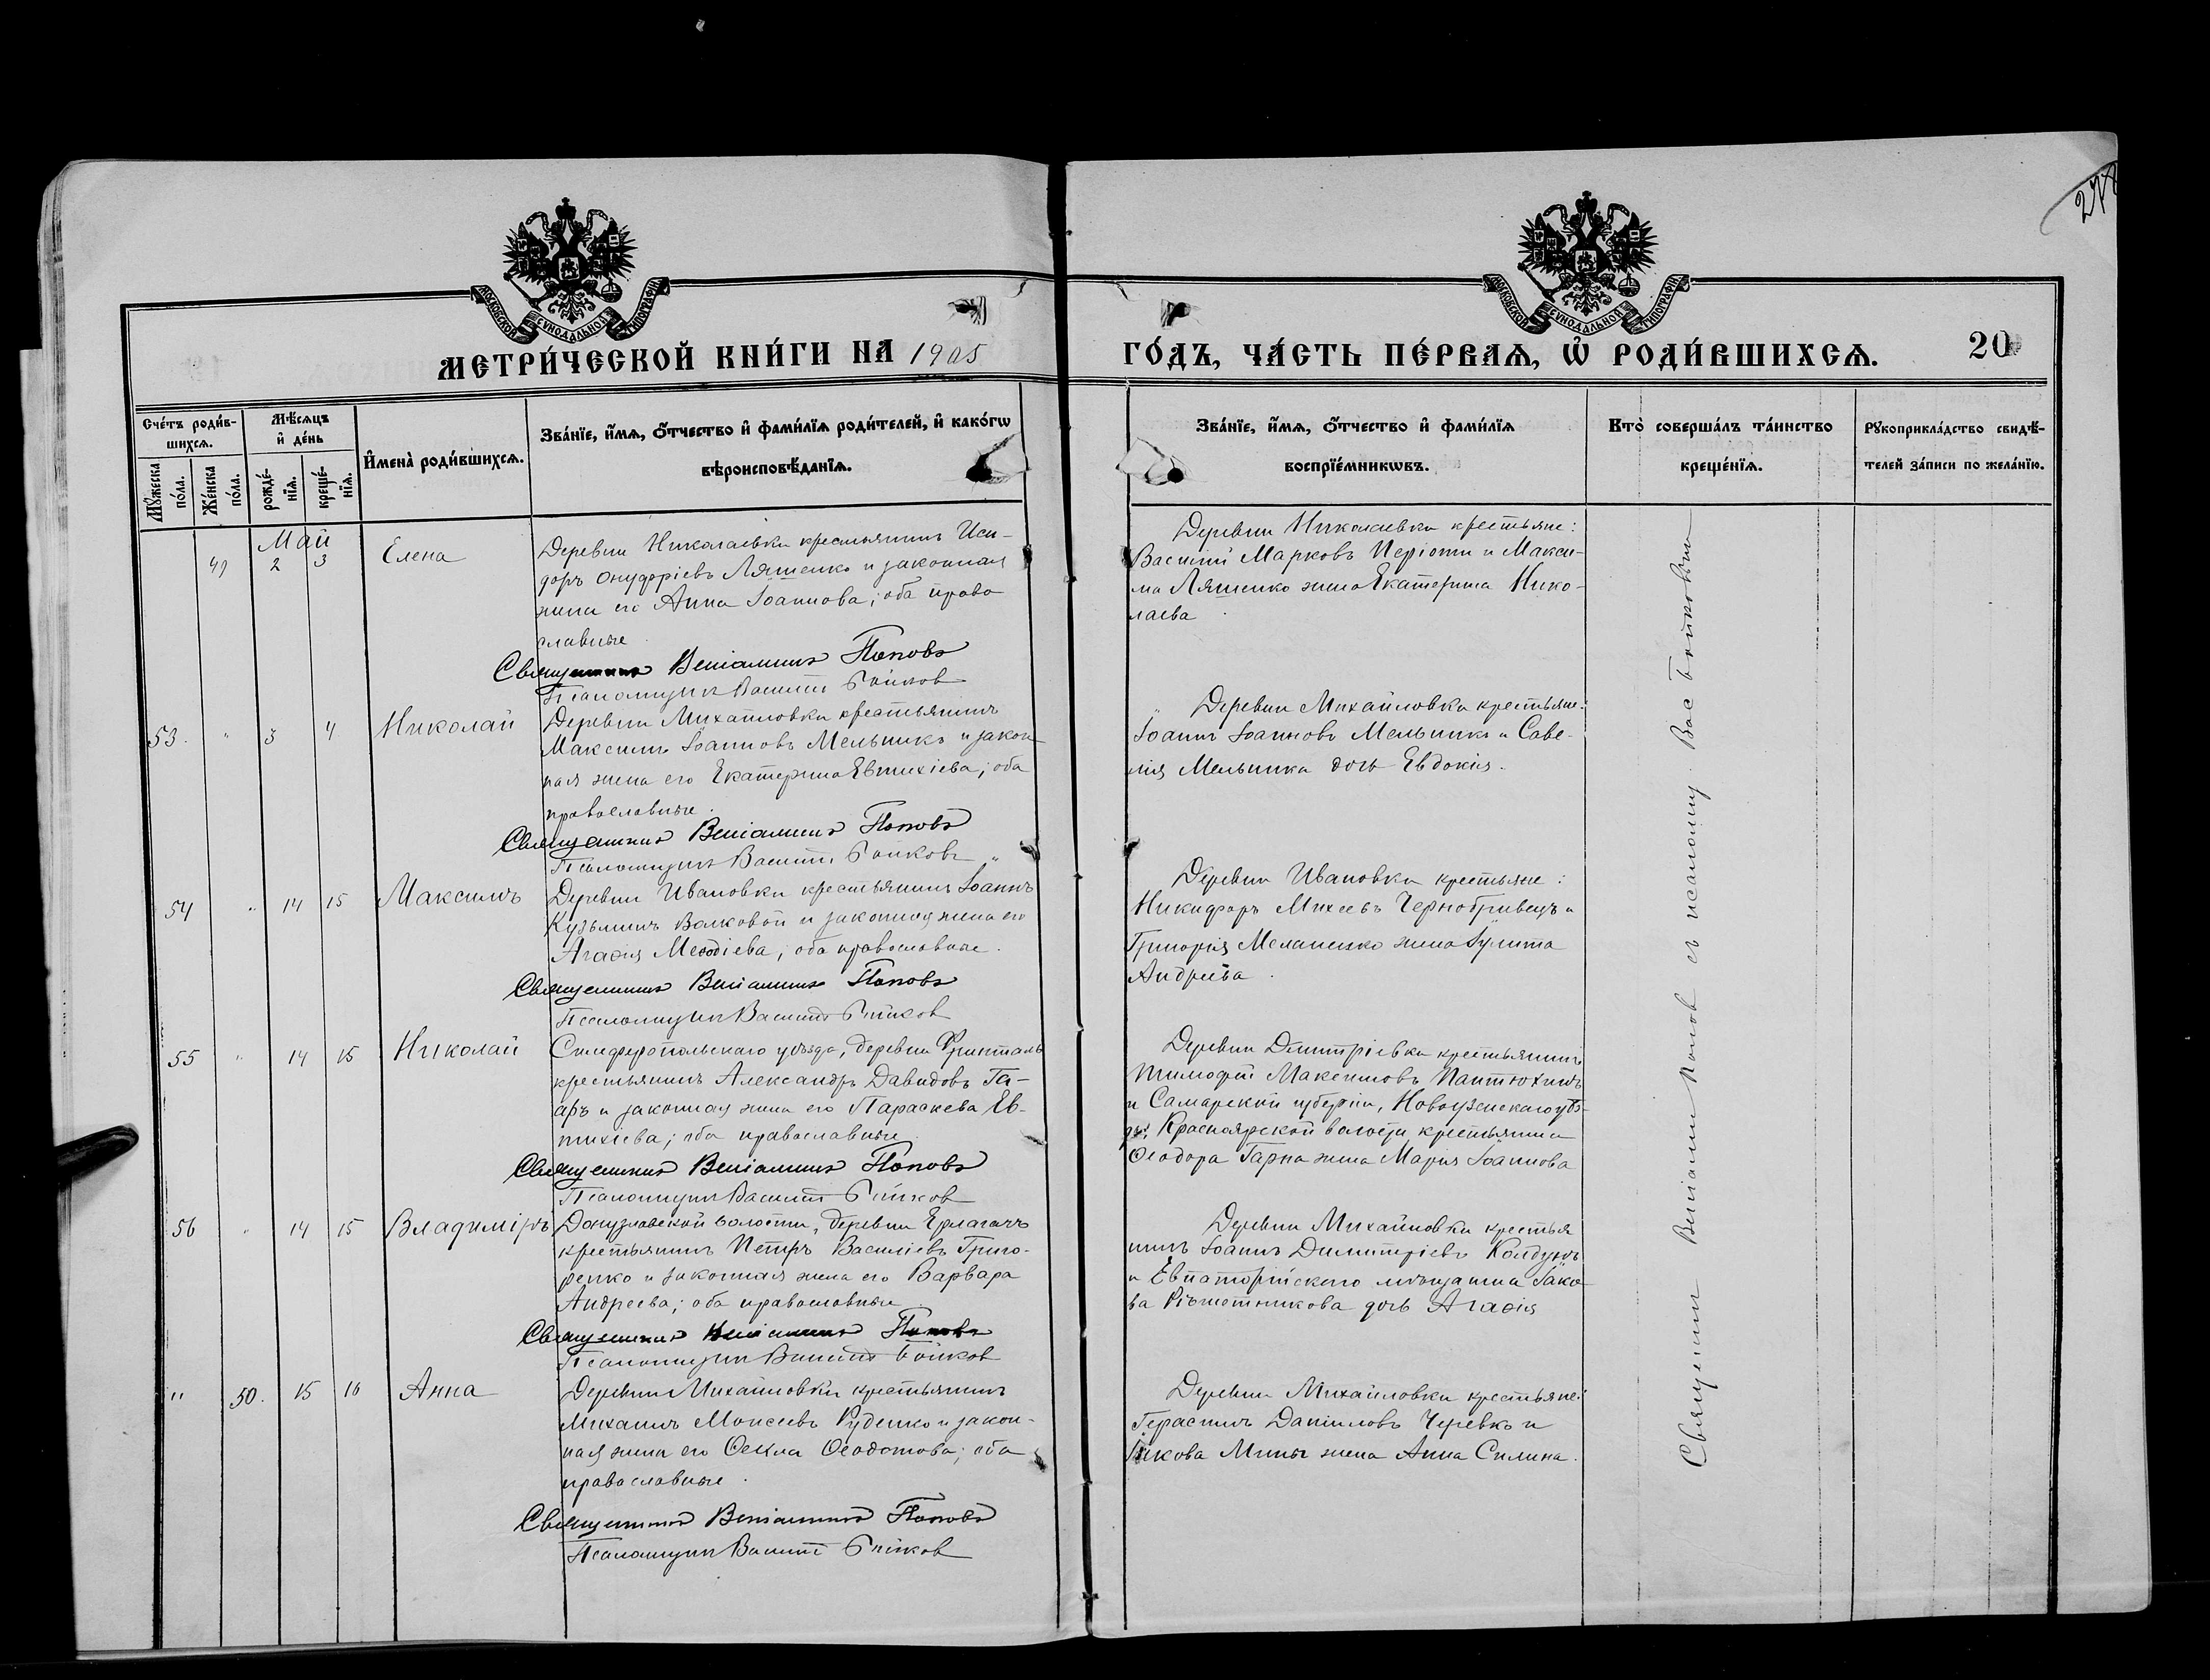 278
МОСКОВСКОЙ СѴНОДАЛЬНОЙ ТИПОГРАФІИ
МОСКОВСКОЙ СѴНОДАЛЬНОЙ ТИПОГРАФІИ
МЕТРИ́ЧЕСКОЙ КНИ́ГИ НА 1905
ГО́ДЪ, ЧА́СТЬ ПЕ́РВАѦ, Ѡ҆ РОДИ́ВШИХСѦ. 20
Сче́тъ роди́в-
шихсѧ.
Мꙋ́жеска по́ла.
Же́нска по́ла.
Мѣ́сѧцъ
и҆ де́нь
рожде́-
нїѧ.
креще́-
нїѧ.
И҆мена̀ роди́вшихсѧ.
Зва́нїе, и҆́мѧ, ѻ҆́тчество и҆ фами́лїѧ роди́телей, и҆ како́гѡ
вѣроисповѣ́данїѧ.
Зва́нїе, и҆́мѧ, ѻ҆́тчество и҆ фами́лїѧ
воспрїе́мникѡвъ.
Кто̀ соверша́лъ та́инство
креще́нїѧ.
Рꙋкоприкла́дство свидѣ́-
телей за́писи по жела́нїю.
Май
49 2 3 Елена
Деревни Николаевки крестьянинъ Иси-
доръ Онуфріевъ Ляшенко и законная
жена его Анна Іоаннова; оба право
славные
Священникъ Веніаминъ Поповъ
Псаломщик Василий Бойков
Деревни Николаевки крестьяне:
Василій Марковъ и Макси-
ма Ляшенко жена Екатерина Нико-
лаева
53. " 3 4 Николай
Деревни Михайловки крестьянинъ
Максимъ Іоанновъ Мельникъ и закон
ная жена его Екатерина Евтихіева; оба
православные.
Священникъ Веніаминъ Поповъ
Псаломщикъ Василий Бойковъ
Деревни Михайловки крестьяне:
Іоаннъ Іоанновъ Мельникъ и Саве-
лія Мельника дочь Евдокія.
54 " 14 15 Максимъ
Деревни Ивановки крестьянинъ Іоаннъ
Кузьминъ Волковой и законная жена его
Агаѳія Меѳодіева; оба православные.
Священникъ Веніаминъ Поповъ
Псаломщик Василий Бойков
Деревни Ивановки крестьяне:
Никифоръ Михеевъ Чернобривецъ и
Григорія Меланенко жена Іулита
Андреева.
55 " 14 15 Николай
Симферопольскаго уѣзда, деревни Фриталь
крестьянинъ Александръ Давидовъ Га-
аръ и законная жена его Параскева Ев-
тихіева; оба православные
Священникъ Веніаминъ Поповъ
Псаломщик Василий Бойков
Деревни Дмитріевки крестьянинъ
Тимофей Максимовъ Пантюхинъ
и Самарской губерніи, Новоузенскаго уѣз-
да, Красноярской волости крестьянина
Ѳеодора жена Марія Іоаннова
56 " 14 15 Владиміръ
Донузлавской волости, деревни
крестьянинъ Петръ Василіевъ Григо-
ренко и законная жена его Варвара
Андреева; оба православные
Священникъ Веніаминъ Поповъ
Псаломщик Василий Бойков
Деревни Михайловки крестья
нинъ Іоаннъ Димитріевъ Колдунъ
и Евпаторійскаго мѣщанина Іако-
ва Рѣшетникова дочь Агаѳія
" 50. 15 16 Анна
Деревни Михайловки крестьянинъ
Михаилъ Моисеевъ Руденко и закон-
ная жена его Ѳекла Ѳеодотова; оба
православные.
Священникъ Веніаминъ Поповъ
Псаломщик Василий Бойков
Деревни Михайловки крестьяне:
Герасимъ Даниловъ Черевко и
Іакова Мины жена Анна Силина.
Священник Веніамин Попов съ псаломщ. Вас Бойковым